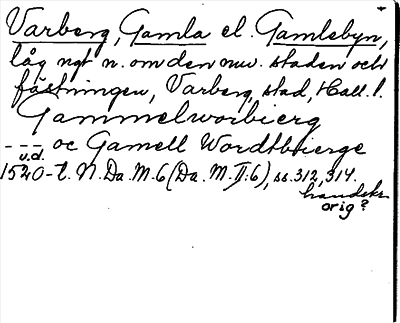 Varberg, Gamla el. Gamlebyn,
låg ngt n. om den nuv. staden och
fästningen, Varberg, stad, Hall. l.
Gammelworbierg
--- oc Gamell Wordtbierge
u.d.
1520-t. N. Da. M. 6 (Da. M. II:6), ss. 312, 314.
handskr.
orig?